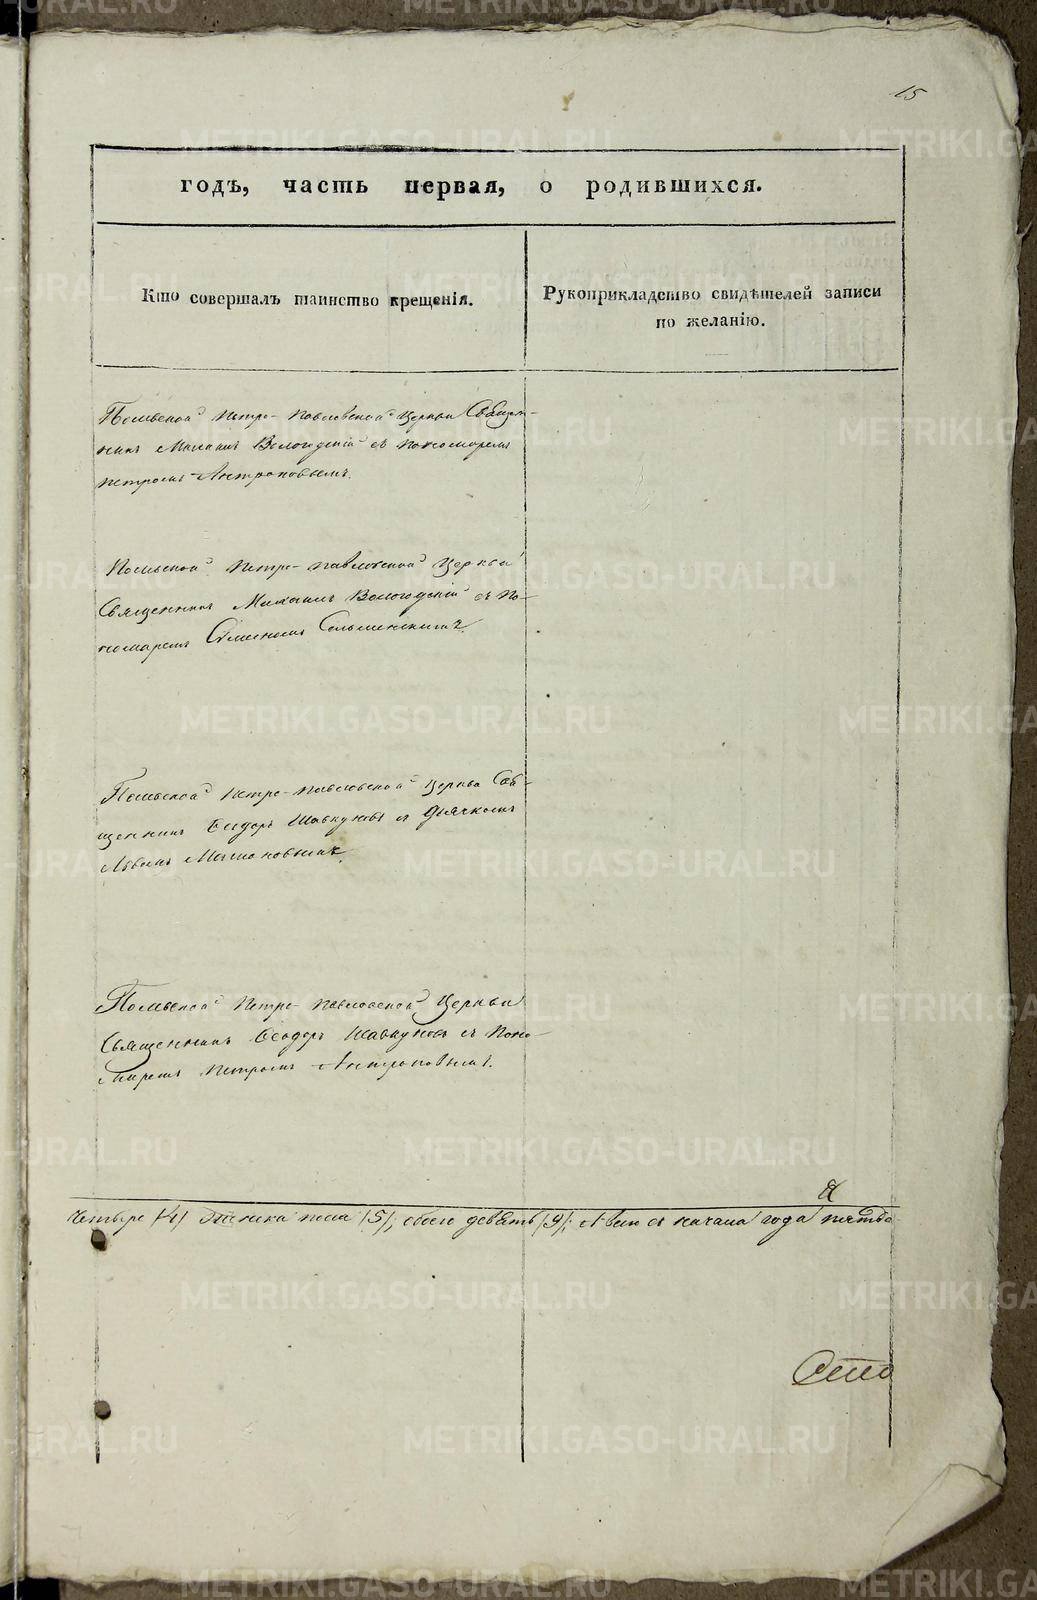 15
годъ, часть первая, о родившихся.
Кто совершалъ таинство крещенія.
Рукоприкладство свидѣтелей записи
по желанію.
Полевской Петро-Павловской Церкви Священ-
никъ Михаилъ Вологодскій съ пономаремъ
Петромъ Антроповымъ.
Полевской Петро-Павловской Церкви
Священникъ Михаилъ Вологодскій съ По-
номаремъ Сѵмеономъ
Полевской Петро-Павловской Церкви Свя-
щенникъ Ѳеодоръ Шавкуновъ съ Дьячкомъ
Львомъ
Полевской Петро-Павловской Церкви
Священникъ Ѳеодоръ Шавкуновъ съ Поно-
маремъ Петромъ Антроповымъ.
Четыре /4/ женска пола /5/; обоего девять /9/; А всего съ начала года
METRIKI.GASO-URAL.RU